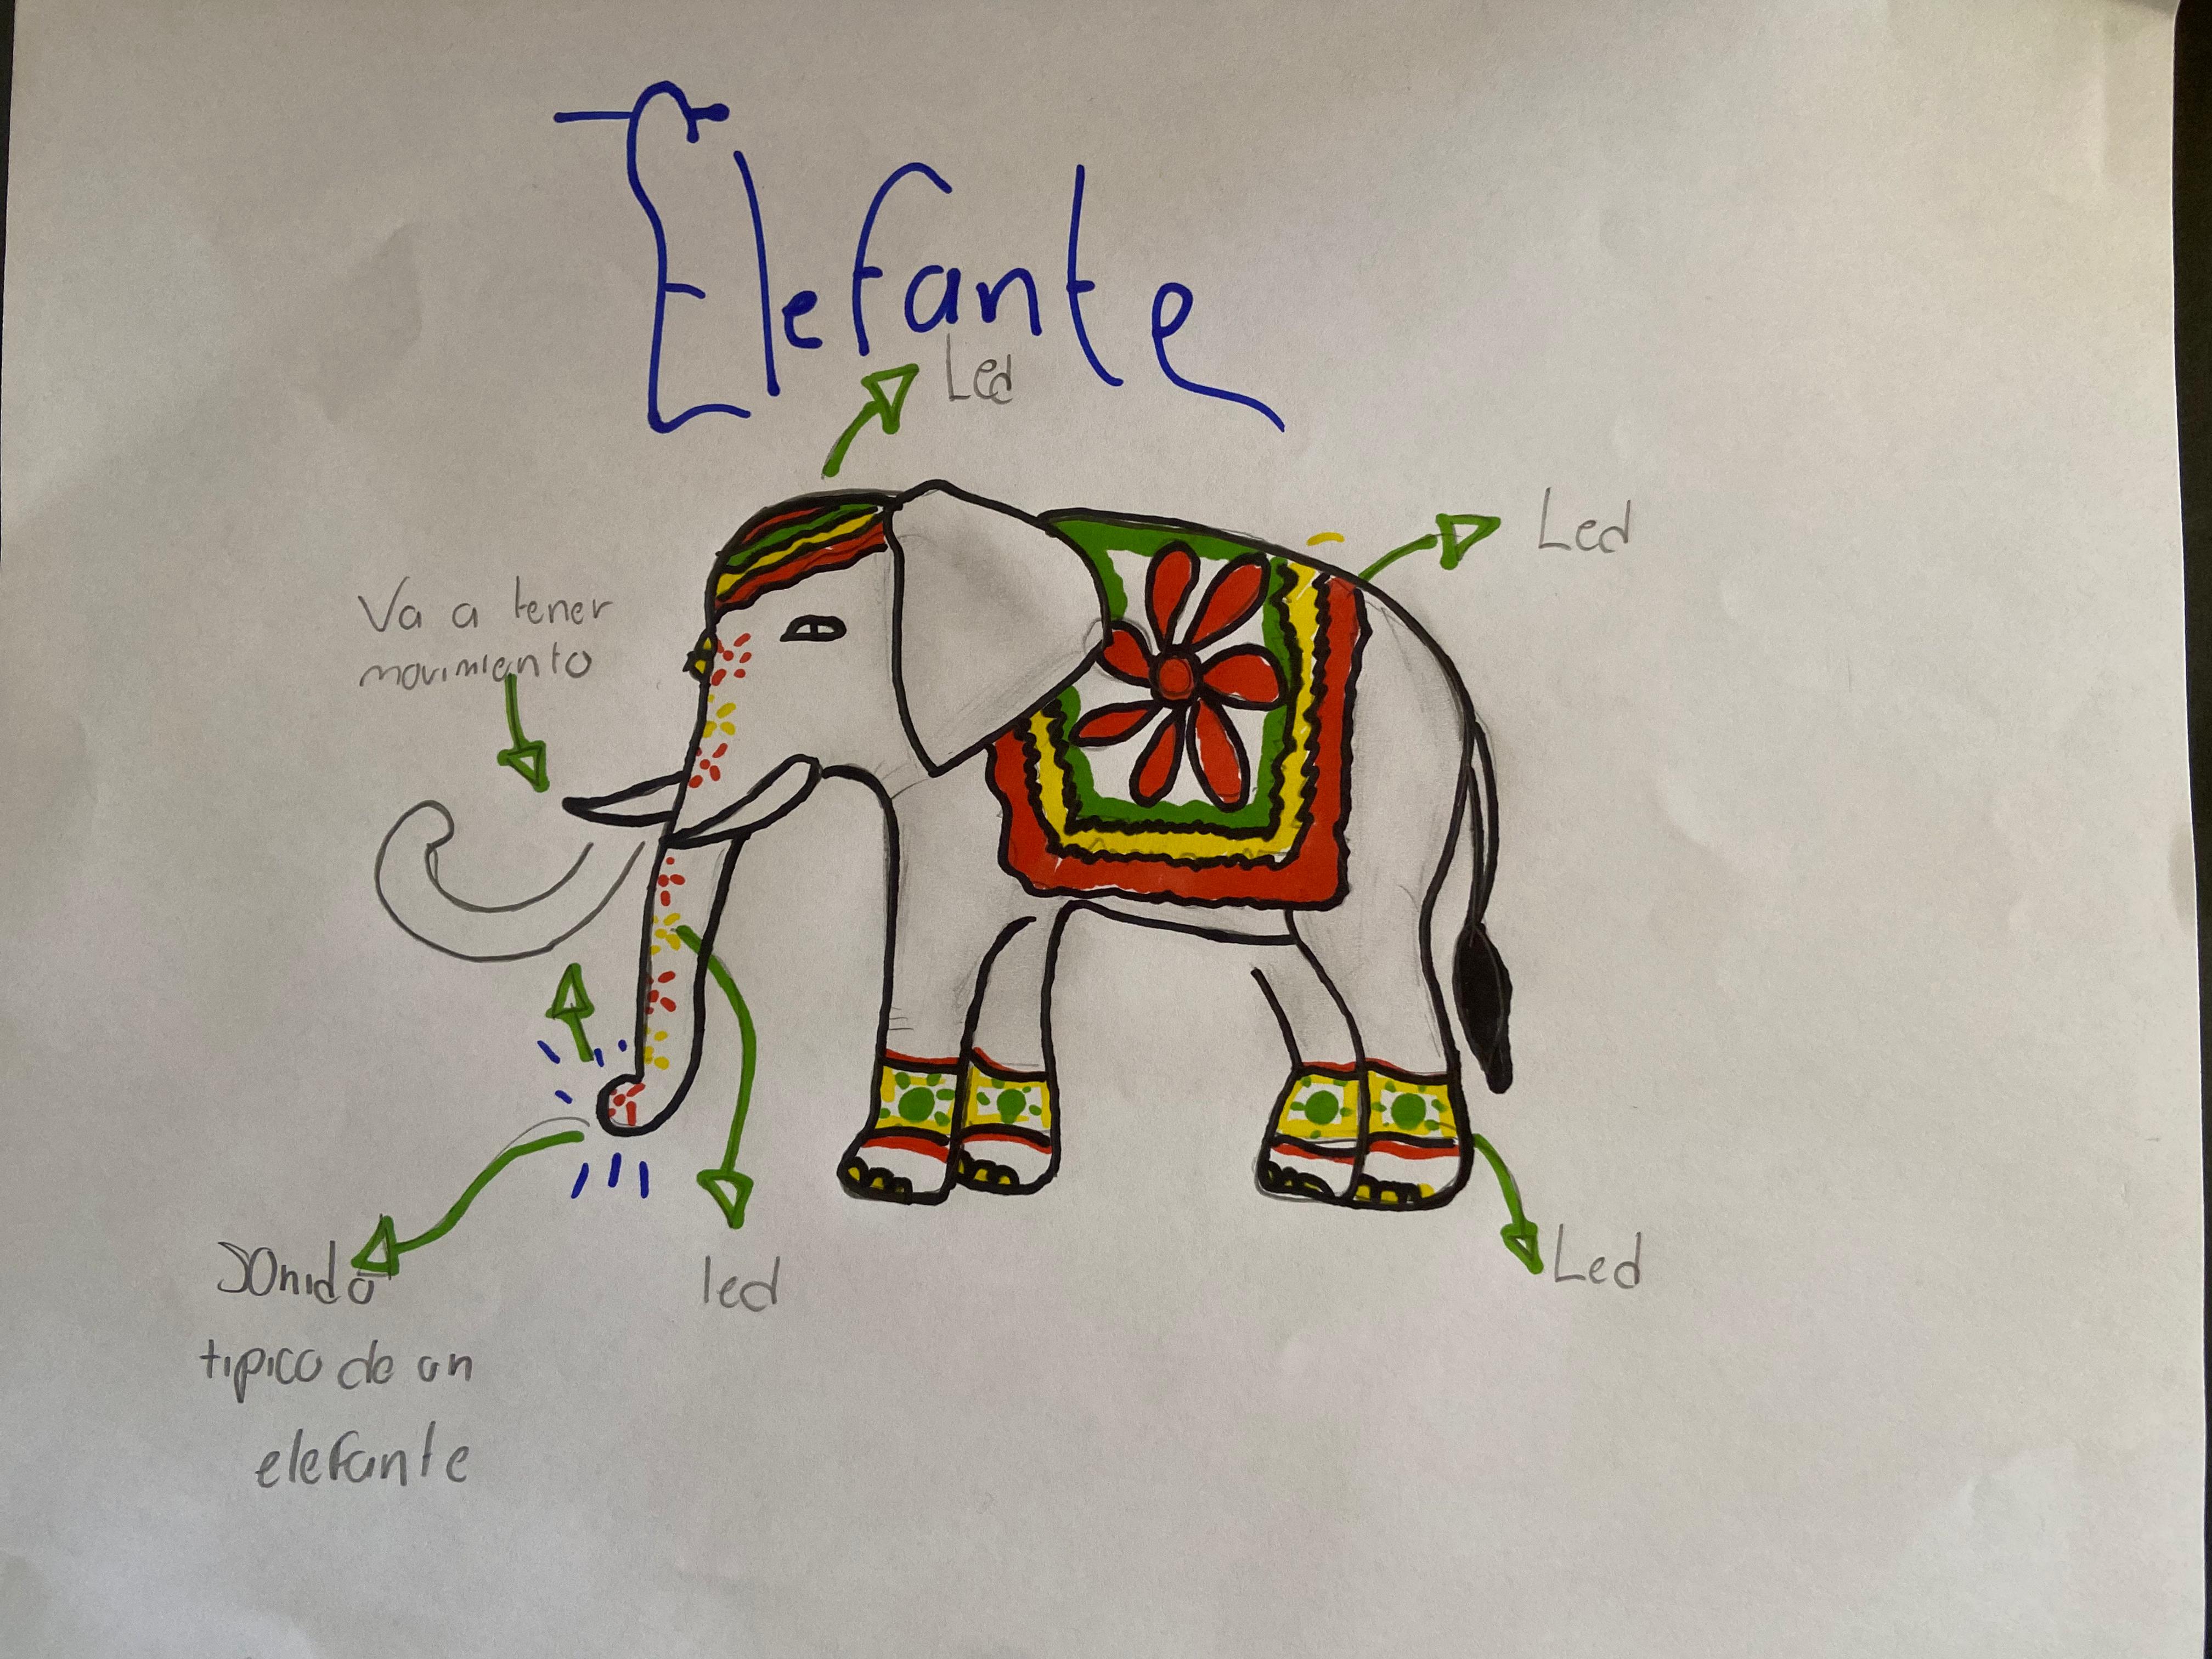 Elefante
Led
Led
Va a tener
movimiento
Sonido
tipico de un
elefante
led
Led